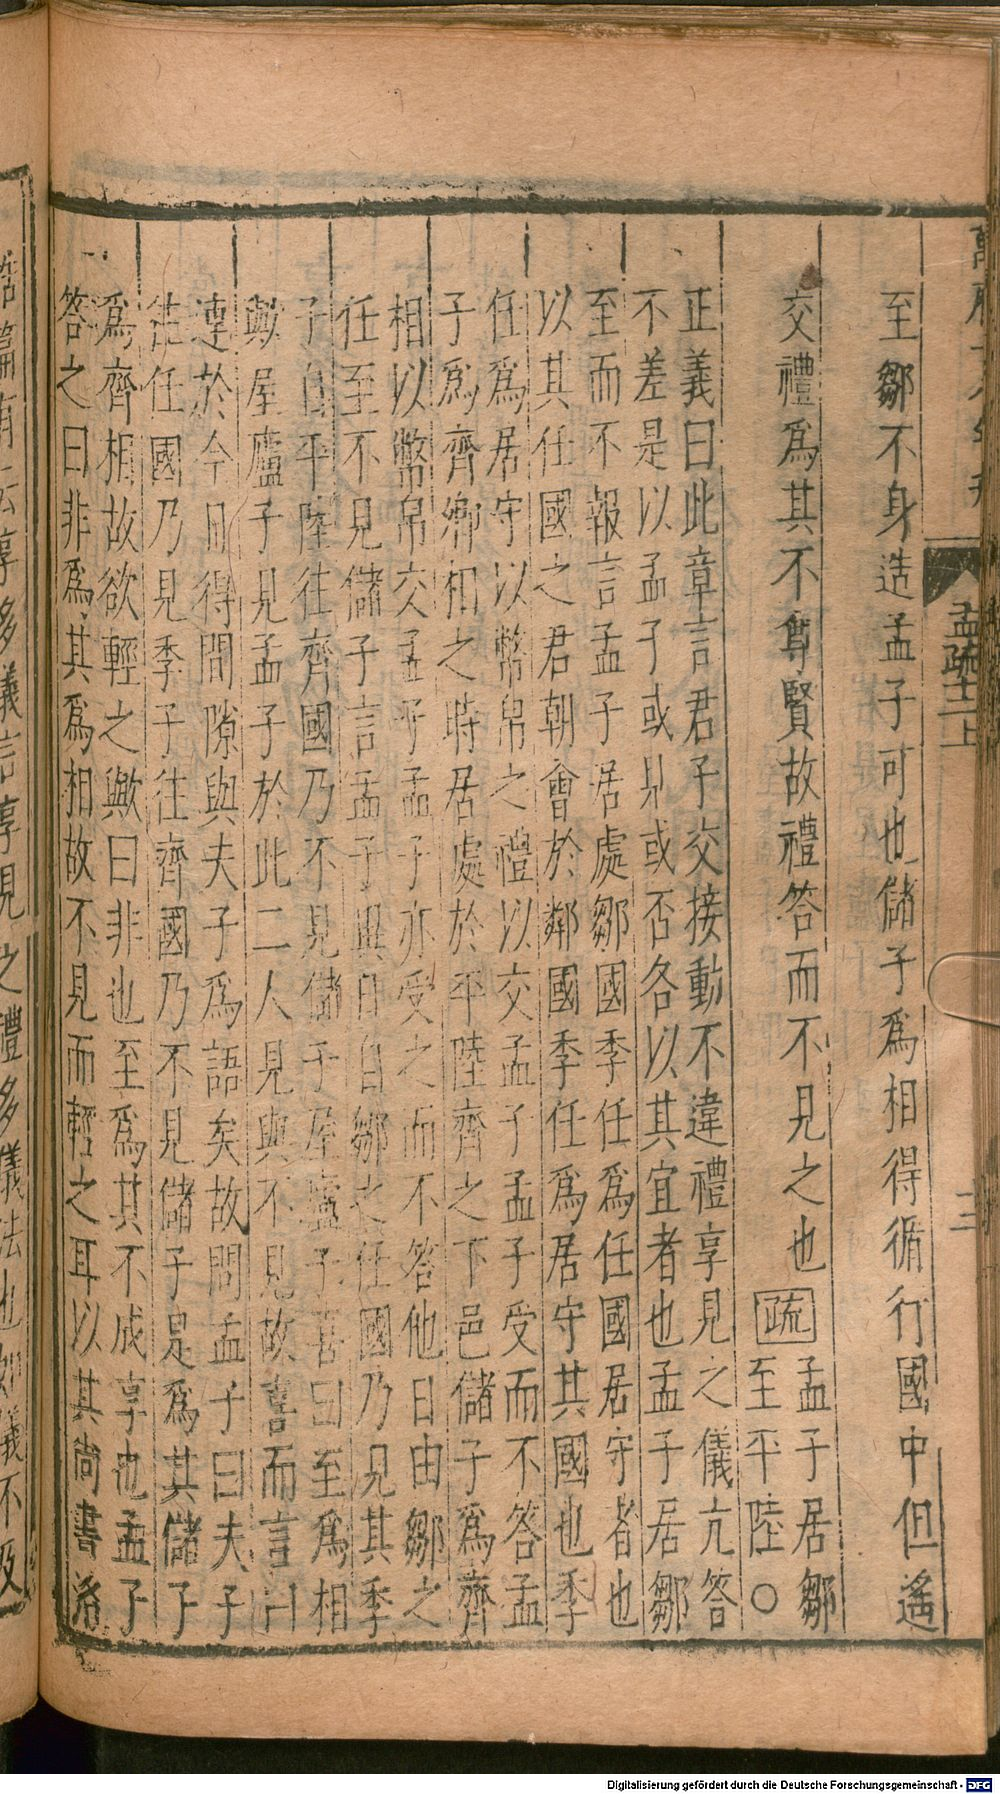 至鄒不身造孟子可也儲子爲相得循行國中但遙
交禮爲其不尊賢故禮答而不見之也疏孟子居鄒
至平陸○
正義曰此章言君子交接動不違禮享見之儀亢答
不差是以孟子或見或否各以其宜者也孟子居鄒
至而不報言孟子居處鄒國季任爲任國居守者也
以其任國之君朝會於鄰國季任爲居守其國也季
任爲居守以幣帛之禮以交孟子孟子受而不答孟
子爲齊卿相之時居處於平陸齊之下邑儲子爲齊
相以幣帛交孟子孟子亦受之而不答他日由鄒之
任至不見儲子言孟子異日自鄒之任國乃見其季
子自平陸往齊國乃不見儲子屋廬子喜曰至爲相
歟屋廬子見孟子於此二人見與不見故喜而言曰
連於今日得間隙與夫子爲語矣故問孟子曰夫子
往任國乃見季子往齊國乃不見儲子是爲其儲子
爲齊相故欲輕之歟曰非也至爲其不成享也孟子
答之曰非爲其爲相故不見而輕之耳以其尚書洛
孟疏十二上
二
誥篇有云享多儀言享見之禮多儀法也如儀不及
Digitalisierung gefördert durch die Deutsche Forschungsgemeinschaft - DFG